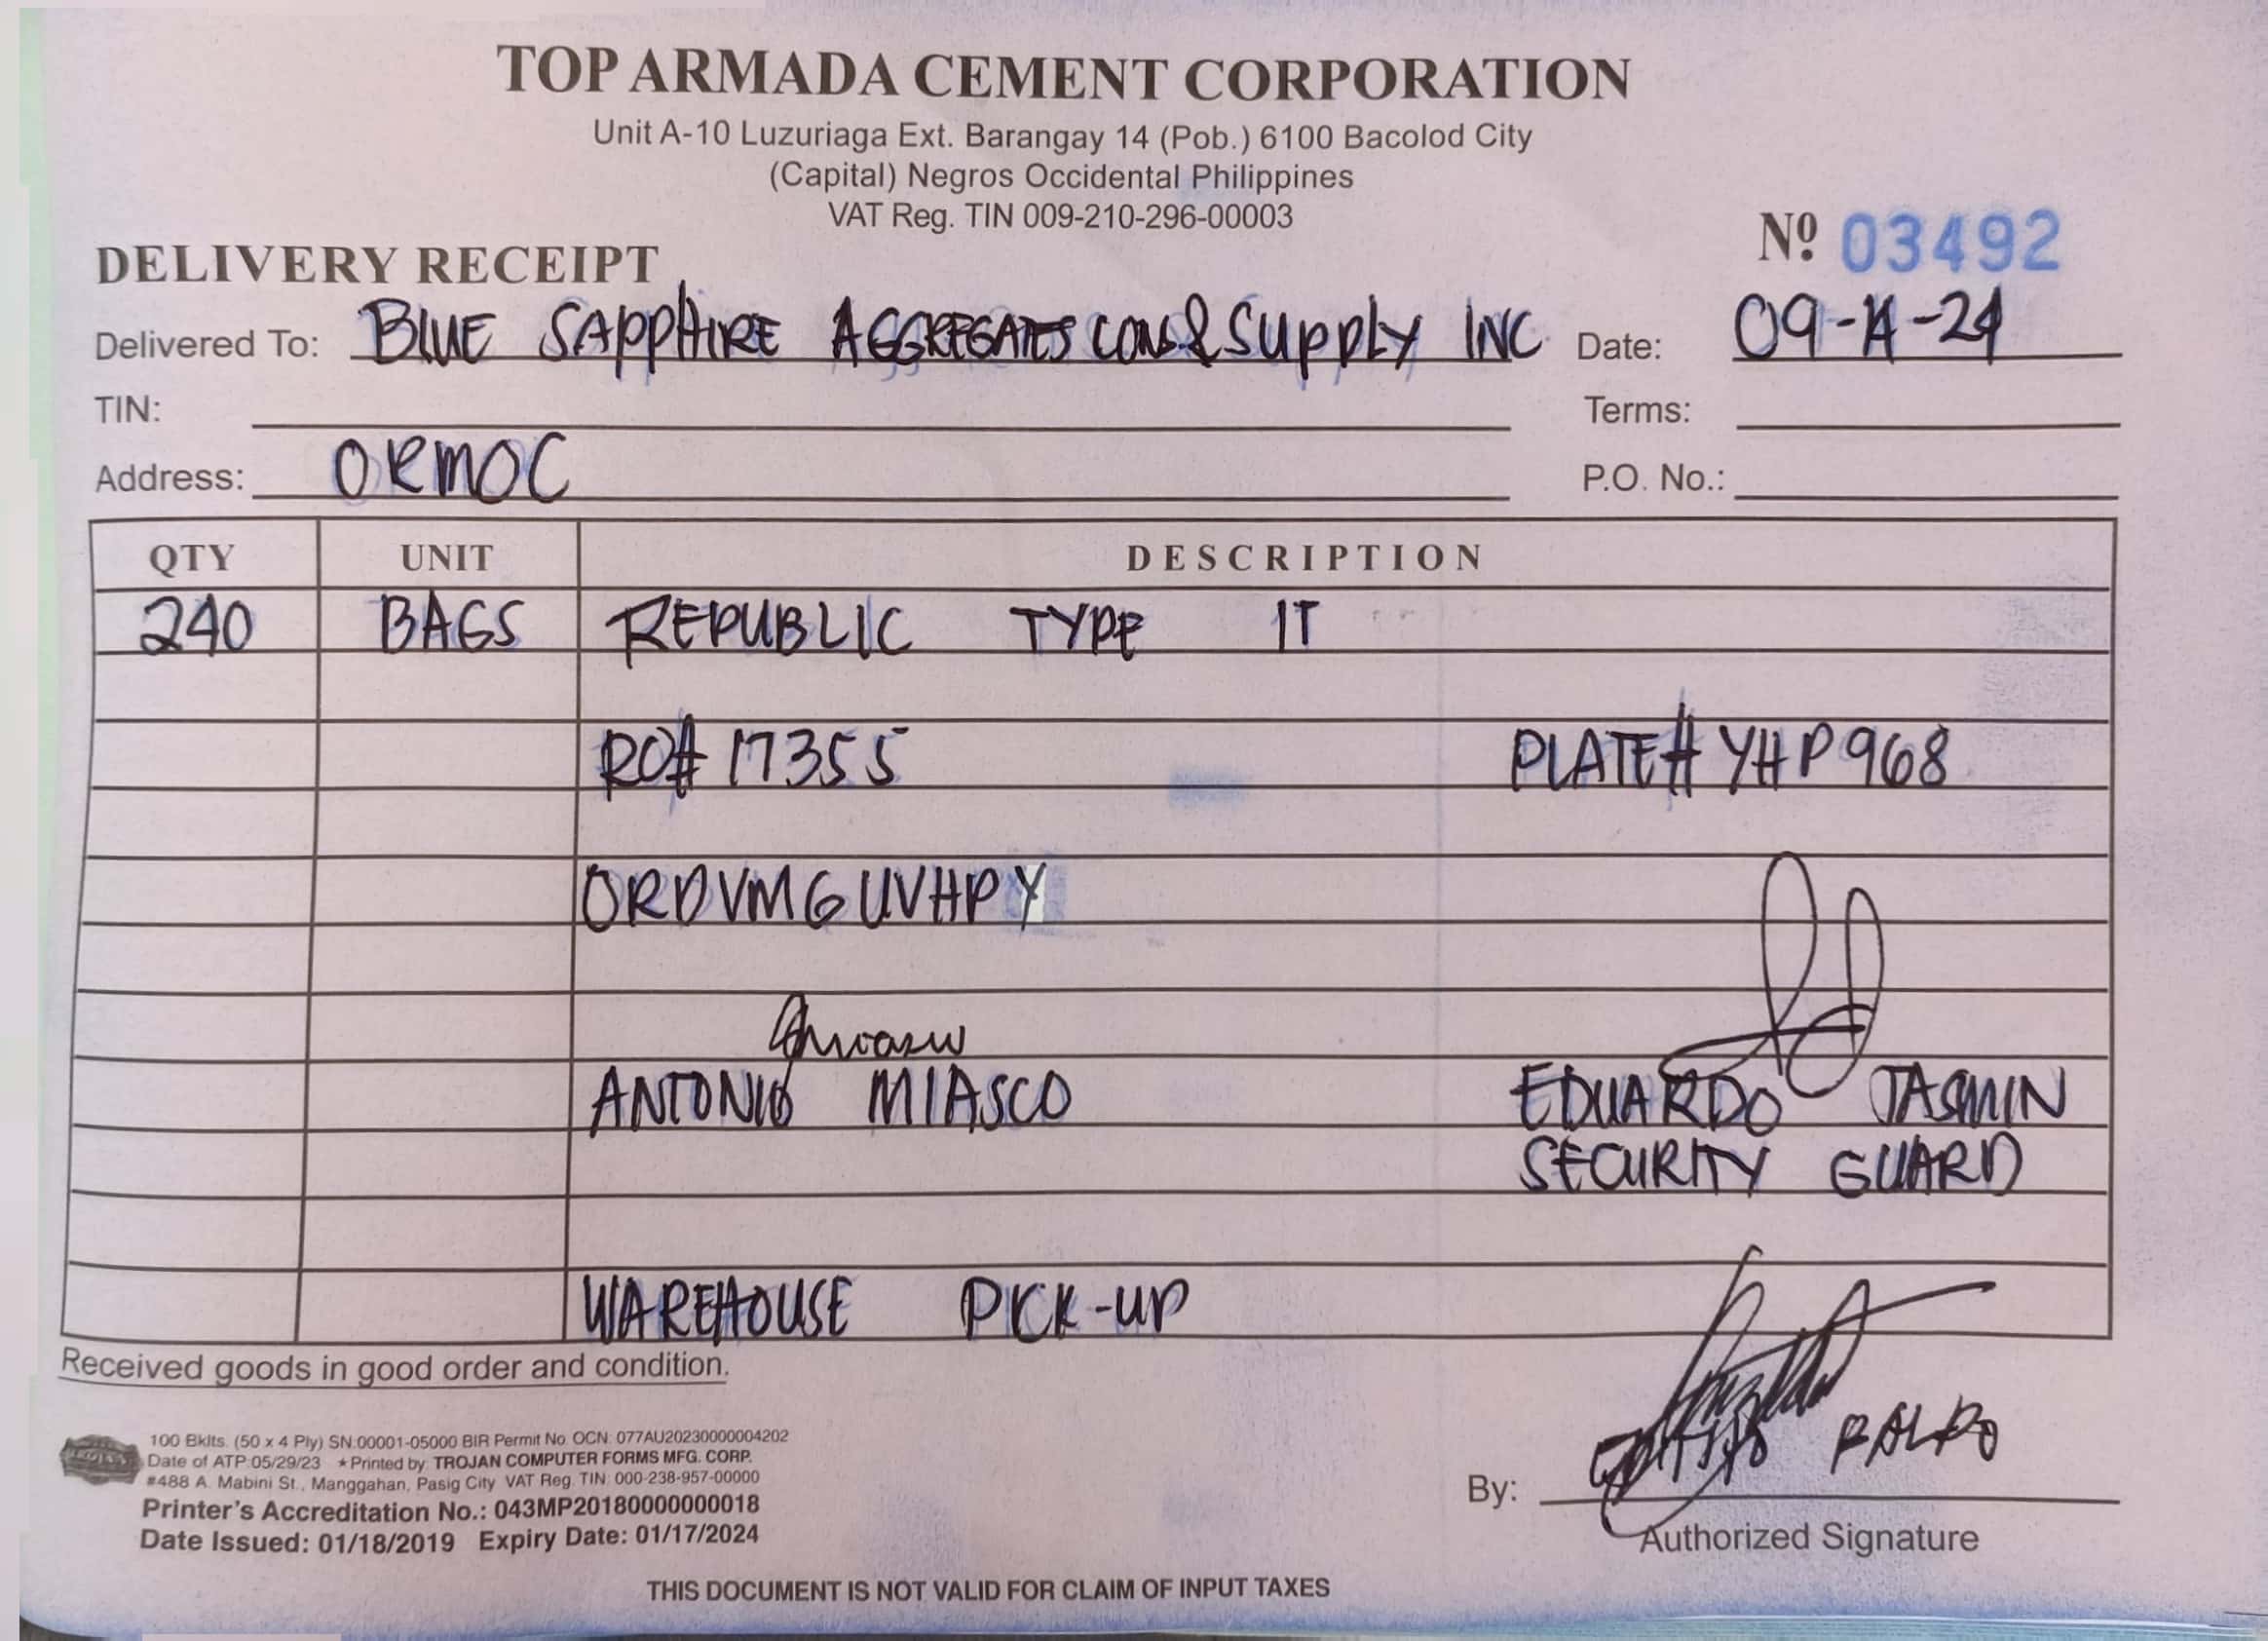 TOP ARMADA CEMENT CORPORATION
Unit A-10 Luzuriaga Ext. Barangay 14 (Pob.) 6100 Bacolod City
(Capital) Negros Occidental Philippines
VAT Reg. TIN 009-210-296-00003
DELIVERY RECEIPT Nº 03492
Delivered To: BLUE SAPPHIRE AGGREGATES CONS & SUPPLY INC Date: 09-14-24
TIN: Terms:
Address: ORMOC P.O. No.:
QTY UNIT DESCRIPTION
240 BAGS REPUBLIC TYPE 1T
RO# 17355 PLATE# YHP968
ORDVMGUVHPY
ANTONIO MIASCO EDUARDO JASMIN
SECURITY GUARD
WAREHOUSE PICK-UP
Received goods in good order and condition.
100 Bklts. (50 x 4 Ply) SN:00001-05000 BIR Permit No. OCN: 077AU20230000004202
Date of ATP:05/29/23 ★Printed by: TROJAN COMPUTER FORMS MFG. CORP.
#488 A. Mabini St., Manggahan, Pasig City VAT Reg. TIN: 000-238-957-00000
Printer's Accreditation No.: 043MP20180000000018
Date Issued: 01/18/2019 Expiry Date: 01/17/2024
By:
Authorized Signature
THIS DOCUMENT IS NOT VALID FOR CLAIM OF INPUT TAXES